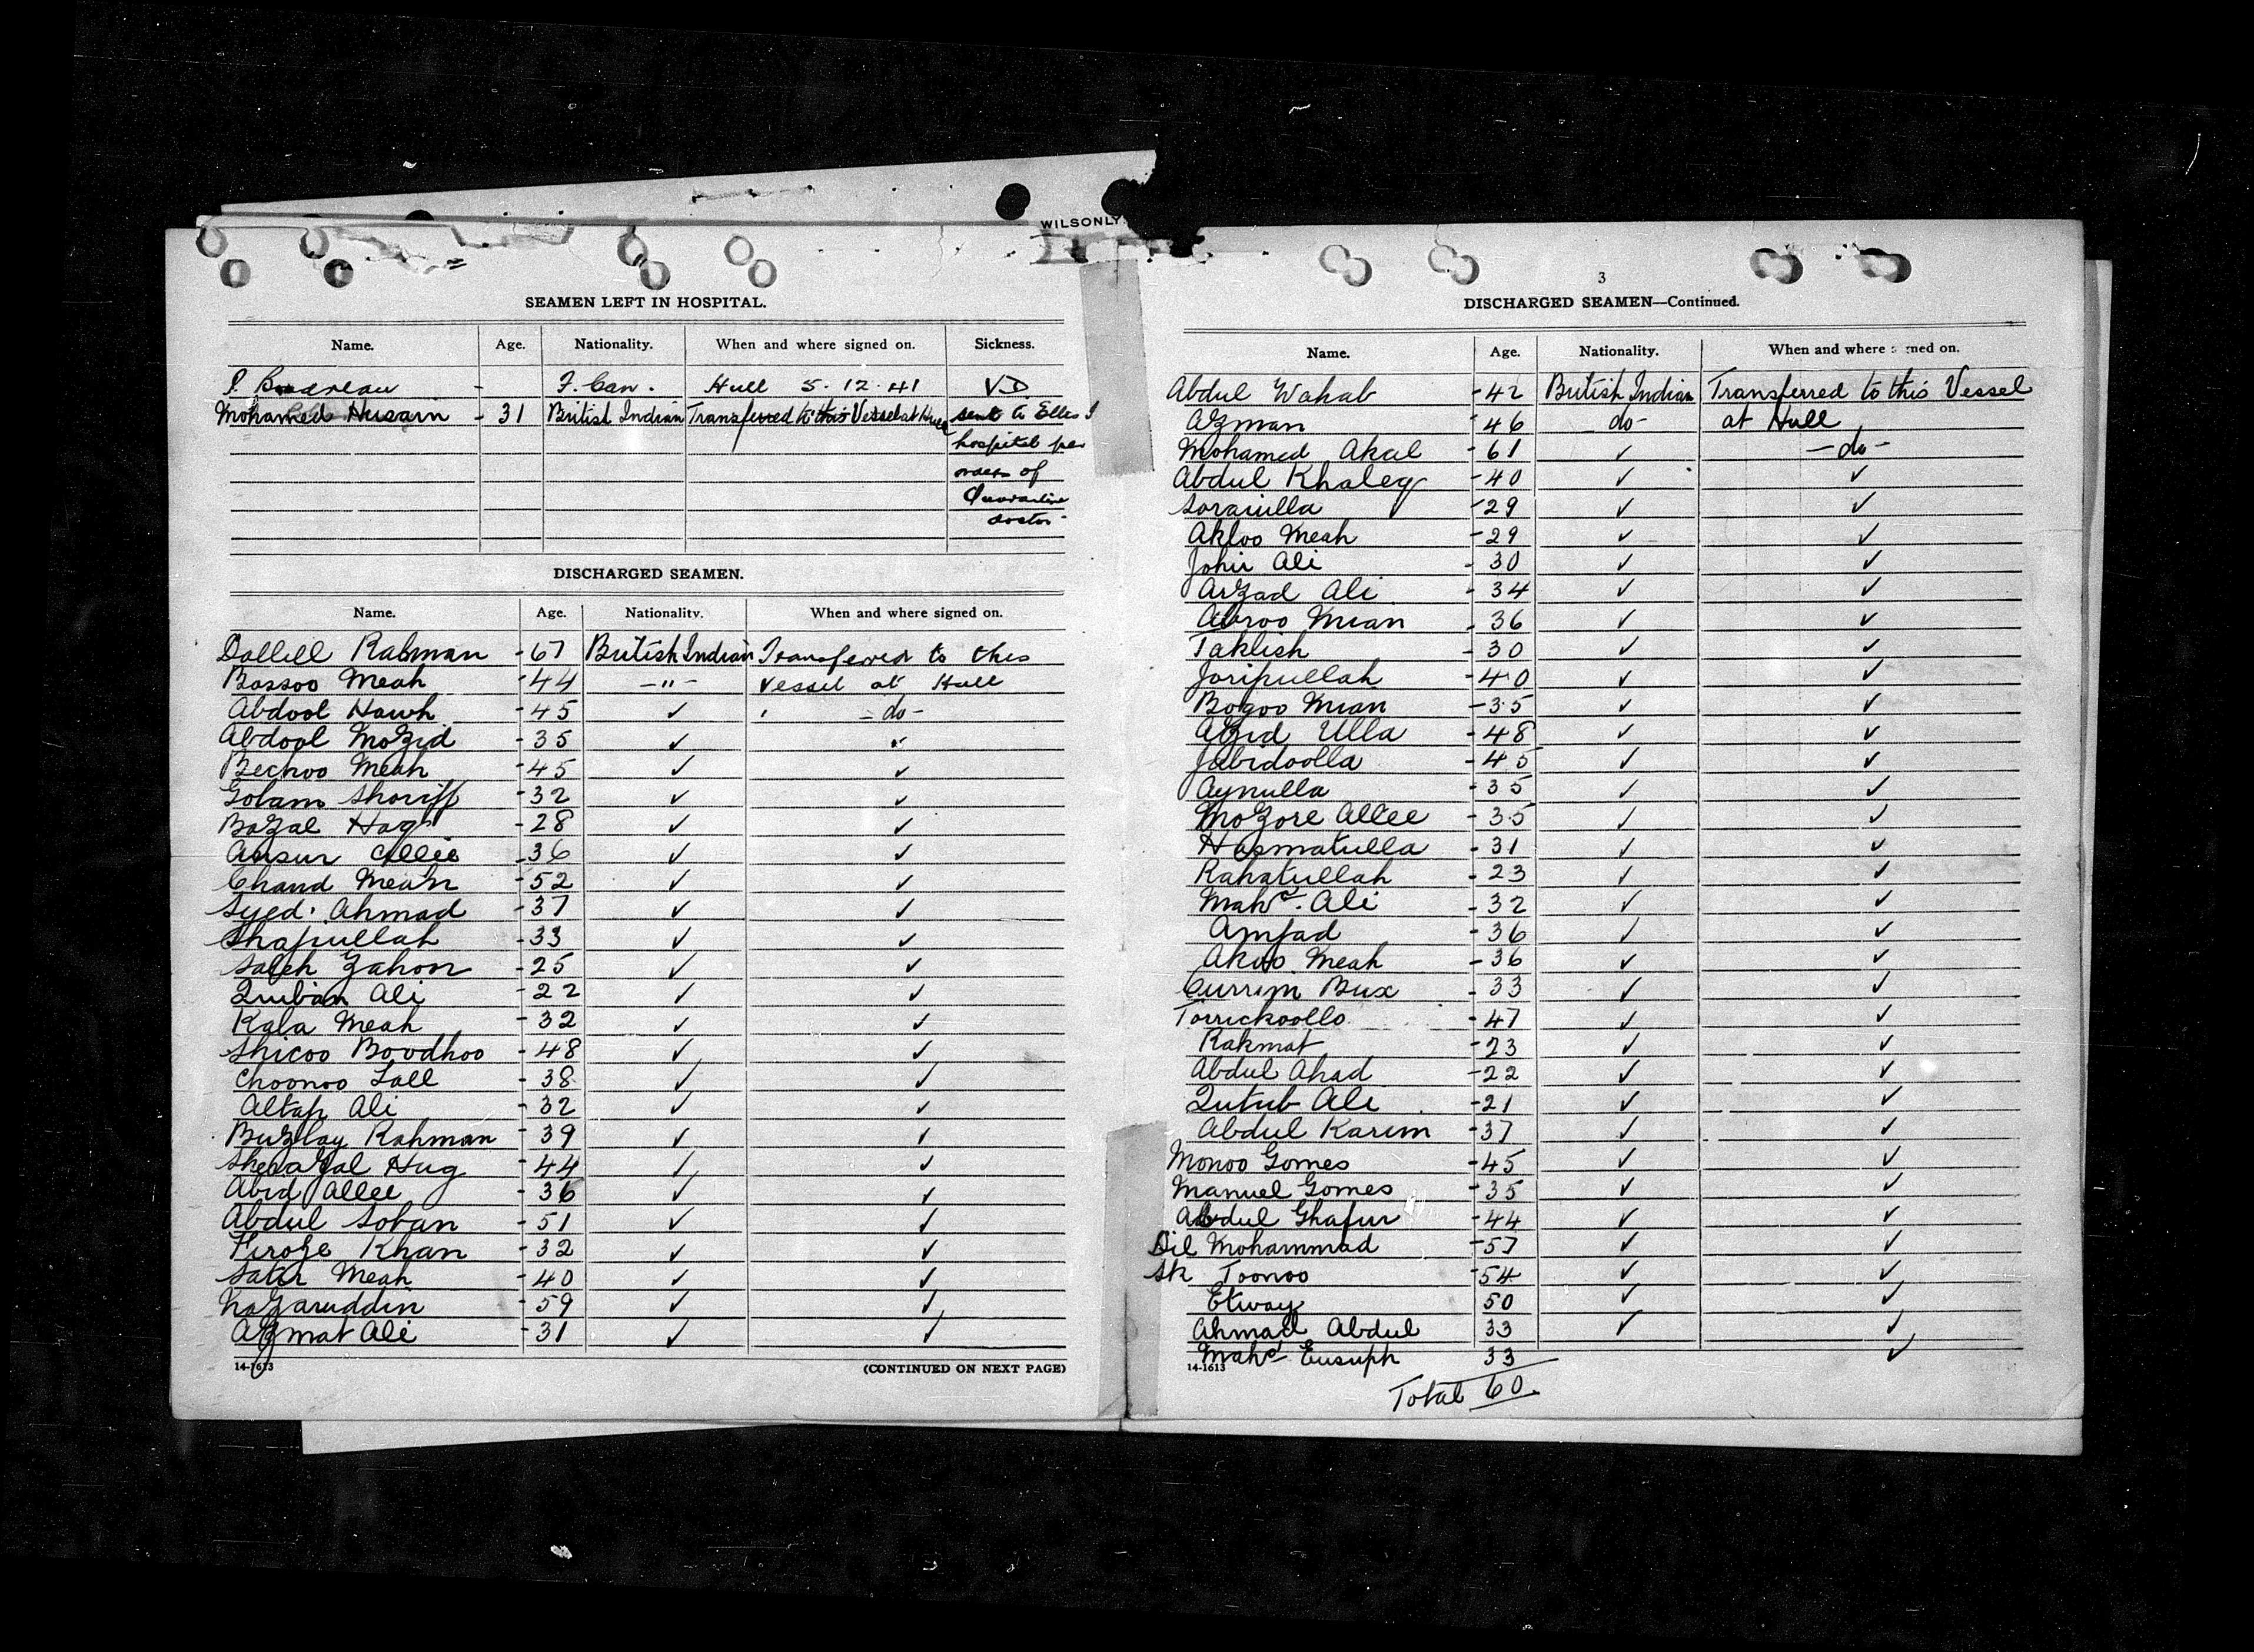 WILSONLY
SEAMEN LEFT IN HOSPITAL.
Name. Age. Nationality. When and where signed on. Sickness.
- F. Can. Hull 5.12.41 VD
Mohamed Husain - 31 British Indian Transferred to this Vessel at Hull sent to Ellis I
hospital per
order of
Quarantine
doctor
DISCHARGED SEAMEN.
Name. Age. Nationality. When and where signed on.
Dallill Rahman - 67 British Indian Transferred to this
Bassoo Meah - 44 —"— vessel at Hull
Abdool Hawh - 45 ✓ - do -
Abdool Mozid - 35 ✓ ✓
Bechoo Meah - 45 ✓ ✓
Golam Shoriff - 32 ✓ ✓
Bazal Hag - 28 ✓ ✓
Ansur Allie - 36 ✓ ✓
Chand Meah - 52 ✓ ✓
Syed Ahmad - 37 ✓ ✓
Shafiullah - 33 ✓ ✓
Saleh Zahon - 25 ✓ ✓
Qurban Ali - 22 ✓ ✓
Kala Meah - 32 ✓ ✓
Shicoo Boodhoo - 48 ✓ ✓
Choonoo Lall - 38 ✓ ✓
Altap Ali - 32 ✓ ✓
Buzlay Rahman - 39 ✓ ✓
Hug - 44 ✓ ✓
Abid Allee - 36 ✓ ✓
Abdul Soban - 51 ✓ ✓
Firoze Khan - 32 ✓ ✓
Satir Meah - 40 ✓ ✓
Nazaruddin - 59 ✓ ✓
Azmat Ali - 31 ✓ ✓
14-1613 (CONTINUED ON NEXT PAGE)
3
DISCHARGED SEAMEN—Continued.
Name. Age. Nationality. When and where signed on.
Abdul Wahab - 42 British Indian Transferred to this Vessel
Azman - 46 do - at Hull
Mohamed Akal - 61 ✓ — do -
Abdul Khaleq - 40 ✓ ✓
Soraiulla - 29 ✓ ✓
Akloo Meah - 29 ✓ ✓
Johir Ali - 30 ✓ ✓
Arzad Ali - 34 ✓ ✓
Abroo Mian - 36 ✓ ✓
Taklish - 30 ✓ ✓
Joripullah - 40 ✓ ✓
Bogoo Mian - 35 ✓ ✓
Azid Ulla - 48 ✓ ✓
Jabidoolla - 45 ✓ ✓
Aynulla - 35 ✓ ✓
Mozore Allee - 35 ✓ ✓
Hasmatulla - 31 ✓ ✓
Rahatullah - 23 ✓ ✓
Mahd. Ali - 32 ✓ ✓
Amjad - 36 ✓ ✓
Meah - 36 ✓ ✓
Currim Bux - 33 ✓ ✓
Torrickoollo - 47 ✓ ✓
Rakmat - 23 ✓ ✓
Abdul Ahad - 22 ✓ ✓
Qutub Ali - 21 ✓ ✓
Abdul Karim - 37 ✓ ✓
Monoo Gomes - 45 ✓ ✓
Manuel Gomes - 35 ✓ ✓
Abdul Ghafur - 44 ✓ ✓
Dil Mohammad - 57 ✓ ✓
Sk Toonoo - 54 ✓ ✓
Etway 50 ✓ ✓
Ahmad Abdul 33 ✓ ✓
Mahd Eusuph 33 ✓
14-1613
Total 60